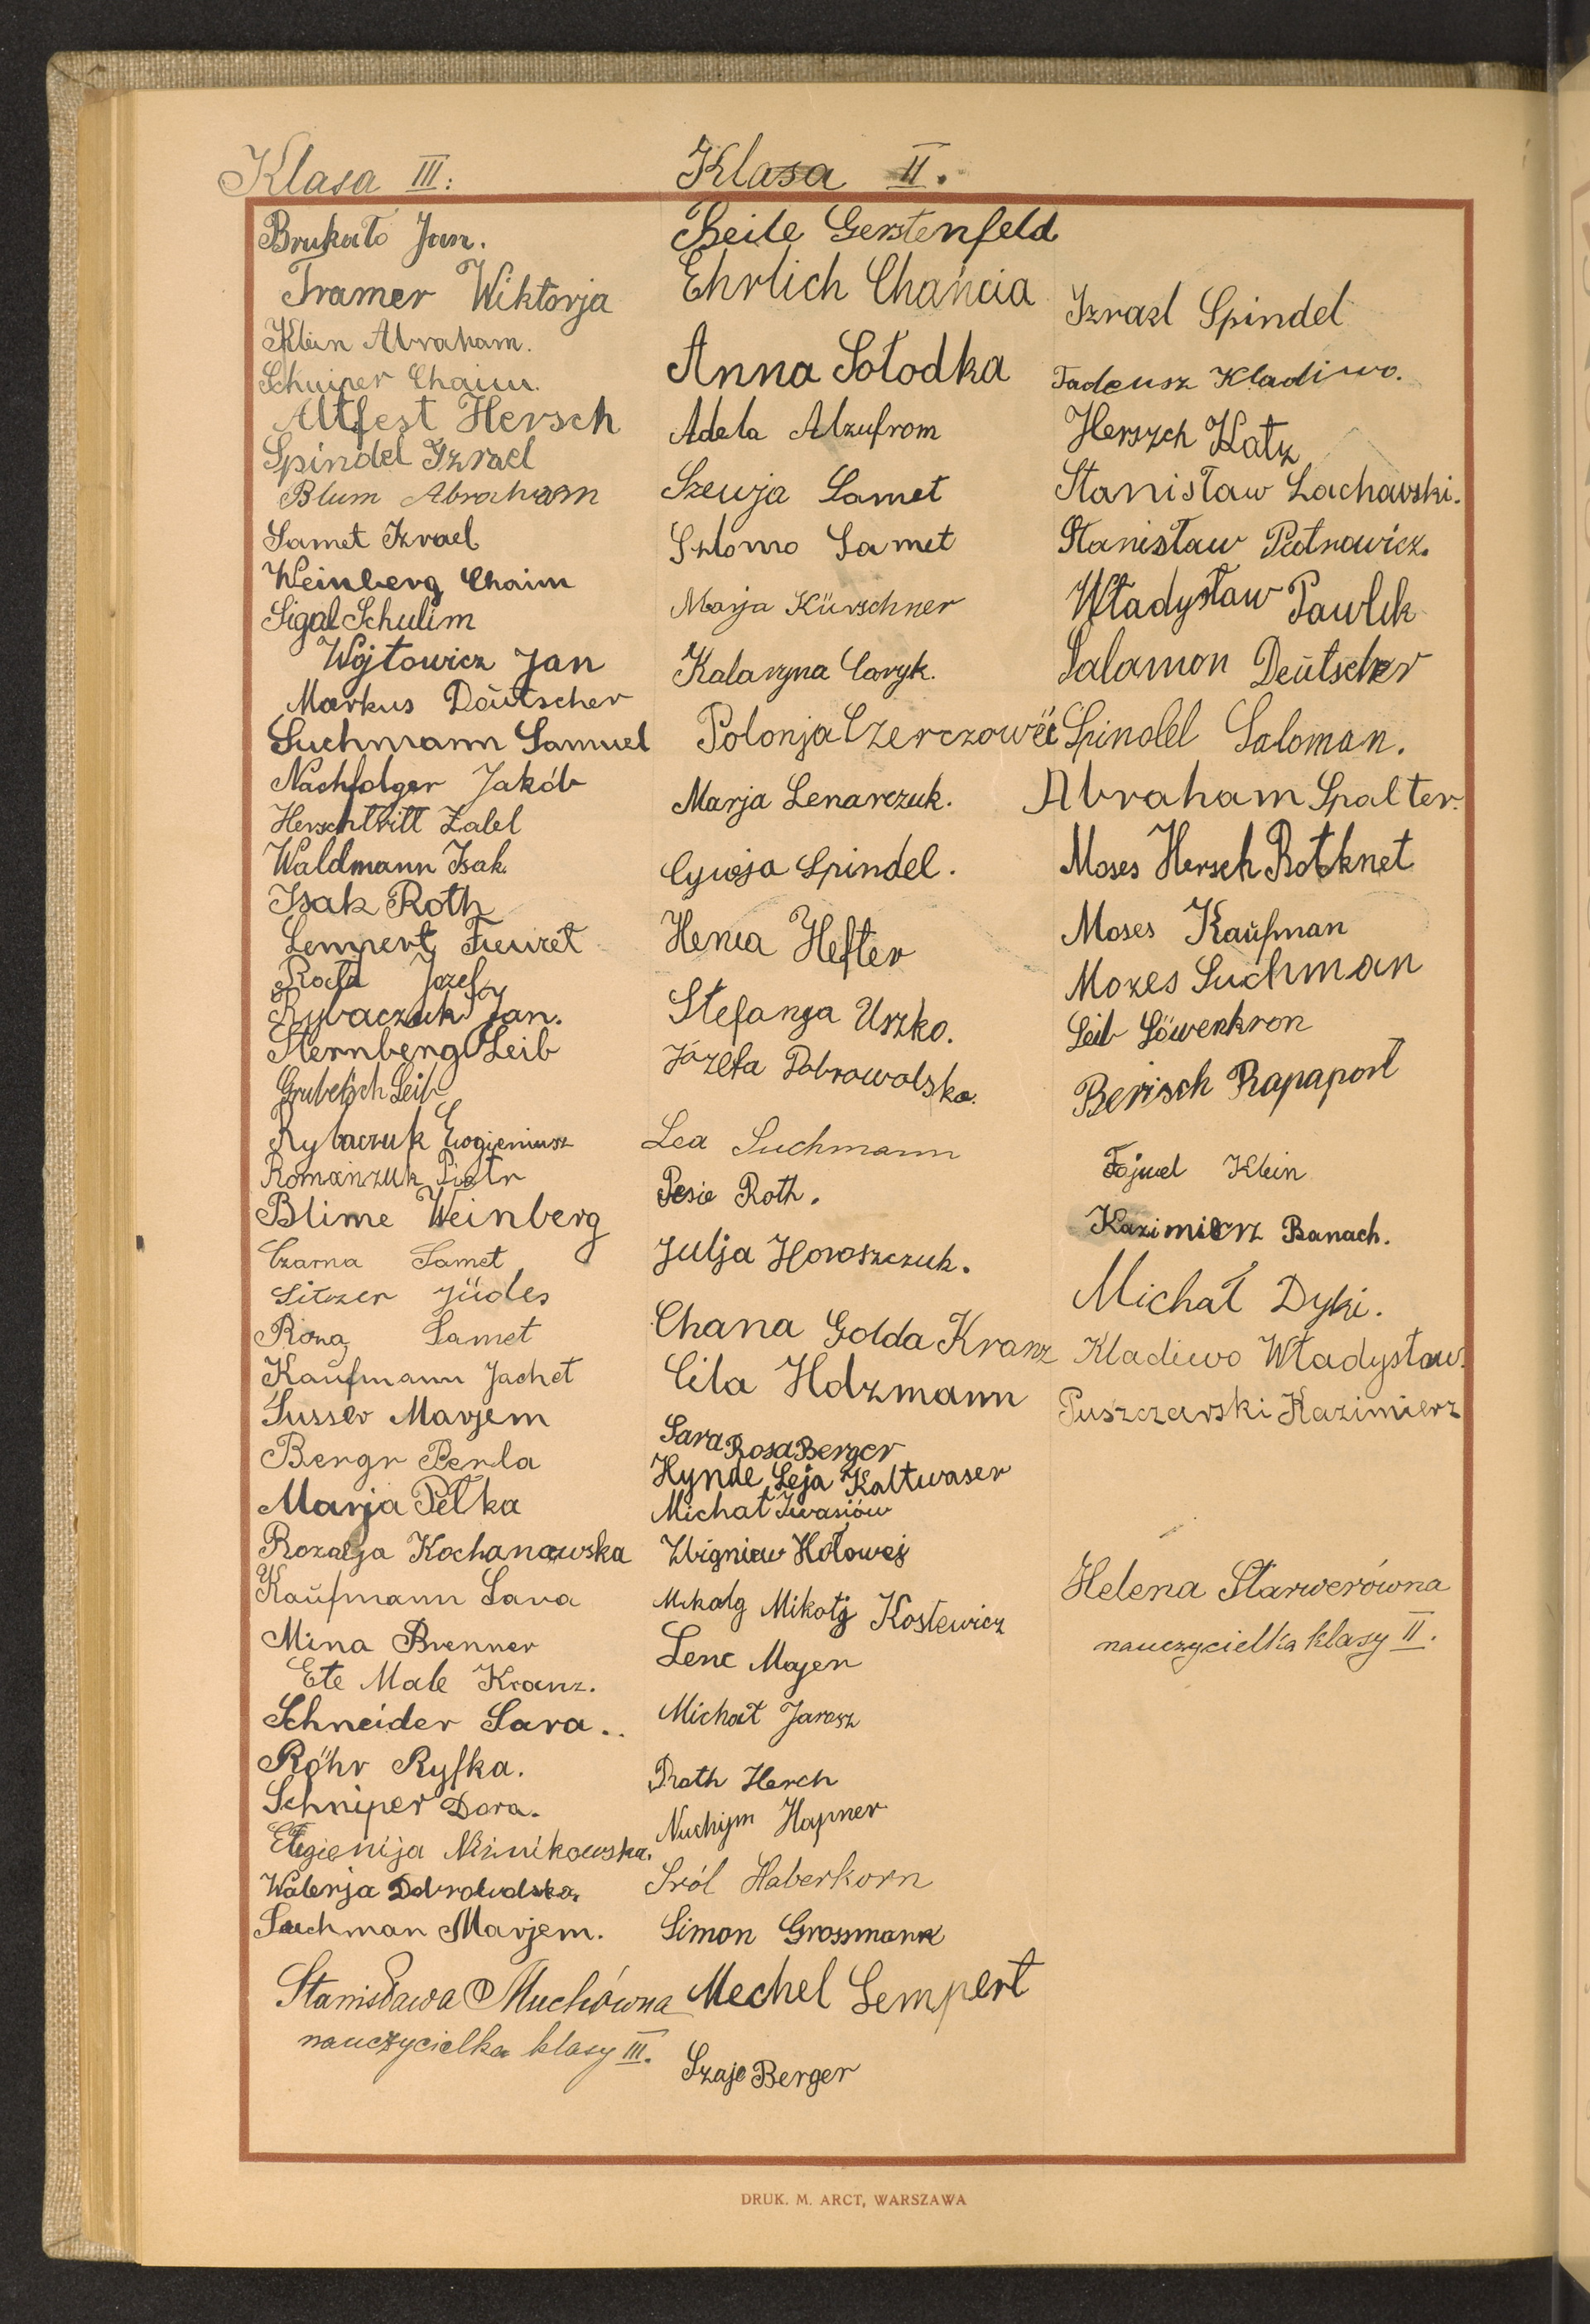 Klasa III:
Brukało Jan.
Tramer Wiktorja
Klein Abraham.
Schniper Chaim.
Altfest Hersch
Spindel Izrael
Blum Abraham
Samet Izrael
Weinberg Chaim
Sigal Schulim
Wojtowicz Jan
Markus Däutscher
Suchmann Samuel
Nachfolger Jakób
Herschtritt Zalel
Waldmann Isak.
Isak Roth
Lempert
Jozef
Rybaczuk Jan.
Sternberg Leib
Leib
Rybaczuk Eogieniusz
Romańzuk Piotr
Blime Weinberg
Czarna Samet
Sitzer Jüdes
Roza Samet
Kaufmann Jachet
Susser Marjem
Bergr Perla
Marja Pełka
Rozalja Kochanowska
Kaŭfmann Sara
Mina Brenner
Ete Male Kranz.
Schneider Sara..
Röhr Ryfka.
Schniper Dora.
Niżnikowska.
Walerja
Suchman Marjem.
Stanisława Muchówna
nauczycielka klasy III.
Klasa II.
Beile Gerstenfeld
Ehrlich Chańcia
Anna Sołodka
Adela Alzufrom
Szewja Samet
Szlomo Samet
Marja Kürschner
Kalaryna Caryk.
Polonja
Marja Lenarczuk.
Cywja Spindel.
Henia Hefter
Stefanja Uszko.
Józefa Dobrowolska.
Lea Suchmann
Pesie Roth.
Julja Horoszczuk.
Chana Golda Kranz
Cila Holzmann
Sara Rosa Berger
Hynde Leja Kaltwaser
Michał Iwasiów
Zbigniew Hołowej
Mikołj Kostewicz
Lene Majer
Michał Jarosz
Roth Herch
Nuchym Hapner
Sról Haberkorn
Simon Grossmann
Mechel Lempert
Szaje Berger
Izrael Spindel
Tadeusz Kladiwo.
Herszch Katz
Stanisław Lacharski.
Stanisław Piotrowicz.
Władysław Pawlik
Salamon Deütscher
Spindel Saloman.
Abraham Spalter.
Moses Hersch Botknet
Moses Kaŭfman
Mozes Suchman
Leib Löwenkron
Berisch Rapaport
Fajwel Klein
Kazimierz Banach.
Michał Dyki.
Kladiwo Władysław.
Puszczarski Kazimierz
Helena Starwerówna
nauczycielka klasy II.
DRUK. M. ARCT, WARSZAWA